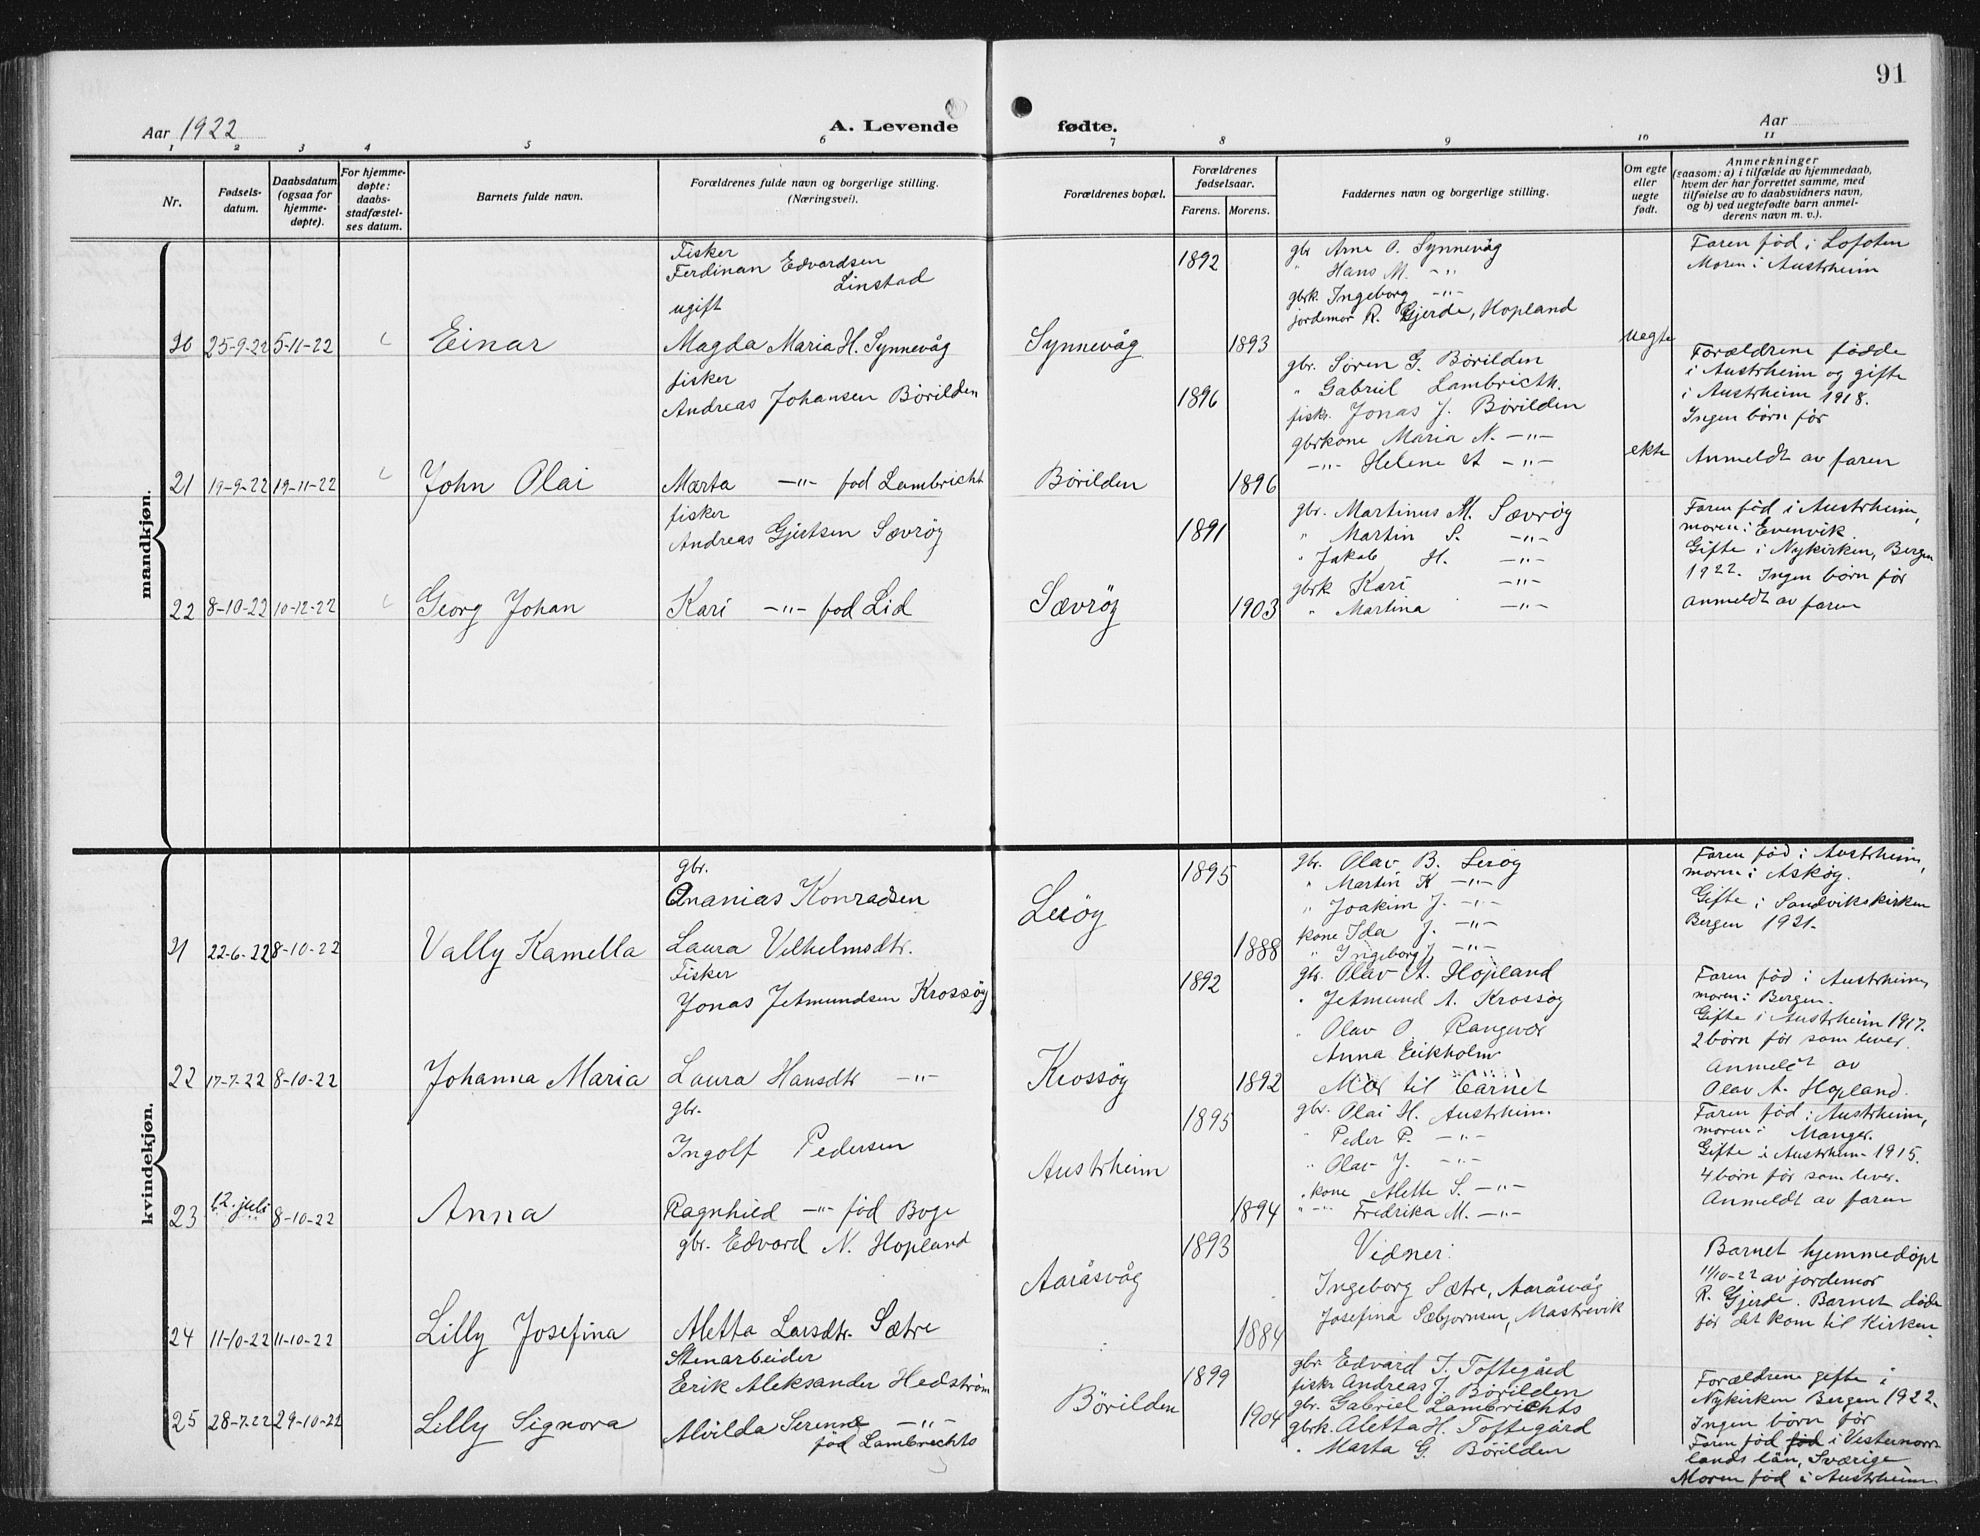 91
Aar 1922
A. Levende fødte.
Aar
1 2 3 4 5 6 7 8 9 10 11
Nr.
Fødsels-
datum.
Daabsdatum
(ogsaa for
hjemme-
døpte).
For hjemme-
døpte:
daabs-
stadfæstel-
ses datum.
Barnets fulde navn.
Forældrenes fulde navn og borgerlige stilling.
(Næringsvei).
Forældrenes bopæl.
Forældrenes
fødselsaar.
Farens. Morens.
Faddernes navn og borgerlige stilling.
Om egte
eller
uegte
født.
Anmerkninger
(saasom: a) i tilfælde av hjemmedaab,
hvem der har forrettet samme, med
tilføielse av to daabsvidners navn,
og b) ved uegtefødte barn anmel-
derens navn m. v.).
mandkjøn.
20 25-9-22 5-11-22 Einar
Fisker
Ferdinan Edvardsen
Linstad
ugift
Magda Maria H. Synnevåg
Synnevåg
1892
1893
gbr Arne O. Synnevåg
" Hans M. -"-
gbrk. Ingeborg -"-
jordemor R. Gjerde, Hopland
uegte
Faren fød i Lofoten
Moren i Austrheim
21 19-9-22 19-11-22 John Olai
fisker
Andreas Johansen Børilden
Marta -"- fød Lambricht
Børilden
1896
1896
gbr. Søren G. Børilden
" Gabriel Lambricth.
fisk. Jonas J. Børilden
gbrkone Maria N. -"-
-"- Helene A -"-
ekte
Forældrene fødde
i Austrheim og gifte
i Austrheim 1918.
Ingen børn før
Anmeldt av faren
22 8-10-22 10-12-22 Georg Johan
fisker
Andreas Gjertsen Sævrøy
Kari -"- fød Lid
Sævrøy
1891
1903
gbr. Martinus M. Sævrøy
" Martin S. -"-
" Jakob H. -"-
gbrk Kari -"-
" Martina -"-
Faren fød i Austrheim,
moren i Evenvik
Gifte i Nykirken, Bergen
1922. Ingen børn før
Anmeldt av faren
kvindekjøn.
21 22-6-22 8-10-22 Vally Kamella
gbr.
Ananias Konradsen
Laura Vilhelmsdtr.
Lerøy
1895
1888
gbr. Olav B. Lerøy
" Martin K -"-
" Joakim J. -"-
kone Ida J. -"-
" Ingeborg J. -"-
Faren fød i Austrheim,
moren i Askøy.
Gifte i Sandvikskirken
Bergen 1921.
22 17-7-22 8-10-22 Johanna Maria
Fisker
Jonas Jetmundsen Krossøy
Laura Hansdtr -"-
Krossøy
1892
1892
gbr. Olav A. Hopland
" Jetmund A. Krossøy
" Olav O. Rangvær
Anna Eikholm
Mor til barnet
Faren fød i Austrheim,
moren i Bergen.
Gifte i Austrheim 1917.
2 børn før som lever.
Anmeldt av
Olav A. Hopland.
23 12. juli 8-10-22 Anna
gbr.
Ingolf Pedersen
Ragnhild -"- fød Boge
Austrheim
1895
1894
gbr. Olai H. Austrheim.
" Peder P. -"-
" Olav J. -"-
" kone Alette S. -"-
" -"- Fredrika M. -"-
Faren fød i Austrheim,
moren i Manger.
Gifte i Austrheim 1915.
4 børn før som lever.
Anmeldt av faren
24 11-10-22 11-10-22 Lilly Josefina
gbr. Edvard N. Hopland
Aletta Larsdtr. Sætre
Aaråsvåg
1893
1884
Vidner:
Ingeborg Sætre, Aaråsvåg
Josefina Sæbjornsen, Mastrevik
Barnet hjemmedøpt
11/10-22 av jordemor
R. Gjerde. Barnet døde
før det kom til Kirken.
25 28-7-22 29-10-22 Lilly Signora
Stenarbeider
Erik Aleksander Hedstrøm
Alvilda Serenne -"-
fød Lambrechts
Børilden
1899
1904
gbr. Edvard I. Toftegård
fiskr Andreas J. Børilden
gbr. Gabriel Lambrichts
gbrk. Aletta H. Toftegård
" Marta G. Børilden
Forældrene gifte i
Nykirken Bergen 1922.
Ingen børn før
Faren fød fød i Vesternorr-
lands län, Sværige
Moren fød i Austrheim